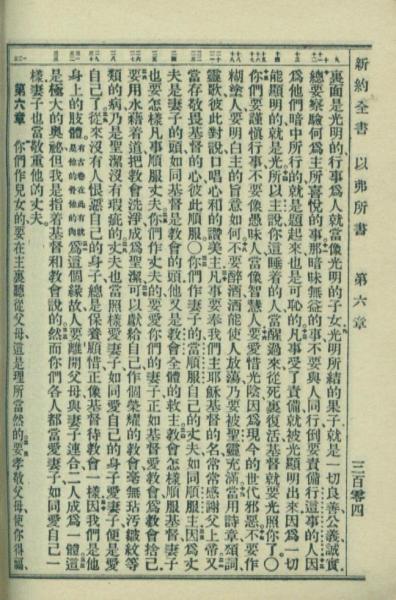 新約全書 以弗所書 第六章 三百零四
裏面是光明的行事爲人就當像光明的子女光明所結的果子就是一切良善公義誠實
總要察驗何爲主所喜悅的事那暗昧無益的事不要與人同行倒要責備行這事的人因
爲他們暗中所行的就是題起來也是可恥的凡事受了責備就被光顯明出來因爲一切
能顯明的就是光所以主說你這睡着的人當醒過來從死裏復活基督就要光照你了〇
你們要謹愼行事不要像愚昧人當像智慧人要愛惜光陰因爲現今的世代邪惡不要作
糊塗人要明白主的旨意如何不要醉酒酒能使人放蕩乃要被聖靈充滿當用詩章頌詞
靈歌彼此對說口唱心和的讚美主凡事要奉我們主耶穌基督的名常常感謝父上帝又
當存敬畏基督的心彼此順服〇你們作妻子的當順服自己的丈夫如同順服主因爲丈
夫是妻子的頭如同基督是教會的頭他又是教會全體的救主教會怎樣順服基督妻子
也要怎樣凡事順服丈夫你們作丈夫的要愛你們的妻子正如基督愛教會爲教會捨己
要用水藉着道把教會洗淨成爲聖潔可以獻給自己作個榮耀的教會毫無玷污皺紋等
類的病乃是聖潔沒有瑕疵的丈夫也當照樣愛妻子如同愛自己的身子愛妻子便是愛
自己了從來沒有人恨惡自己的身子總是保養顧惜正像基督待教會一樣因我們是他
身上的肢體有古卷在此有就是他的骨他的肉爲這個緣故人要離開父母與妻子連合二人成爲一體這
是極大的奧祕但我是指着基督和教會說的然而你們各人都當愛妻子如同愛自己一
樣妻子也當敬重他的丈夫
第六章 你們作兒女的要在主裏聽從父母這是理所當然的要孝敬父母使你得福